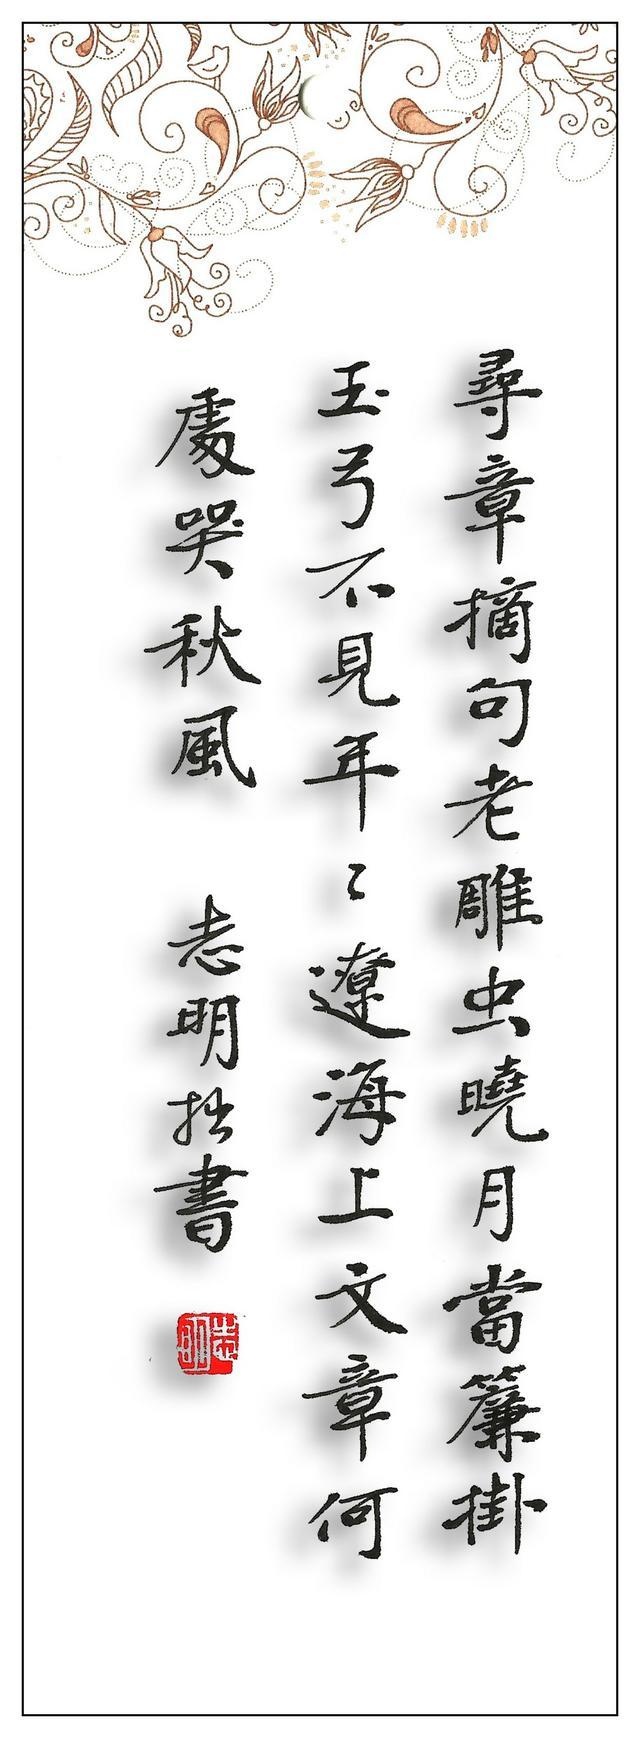 尋章摘句老雕虫曉月當簾掛
玉弓不見年〻遼海上文章何
處哭秋風
志明拙書
志明